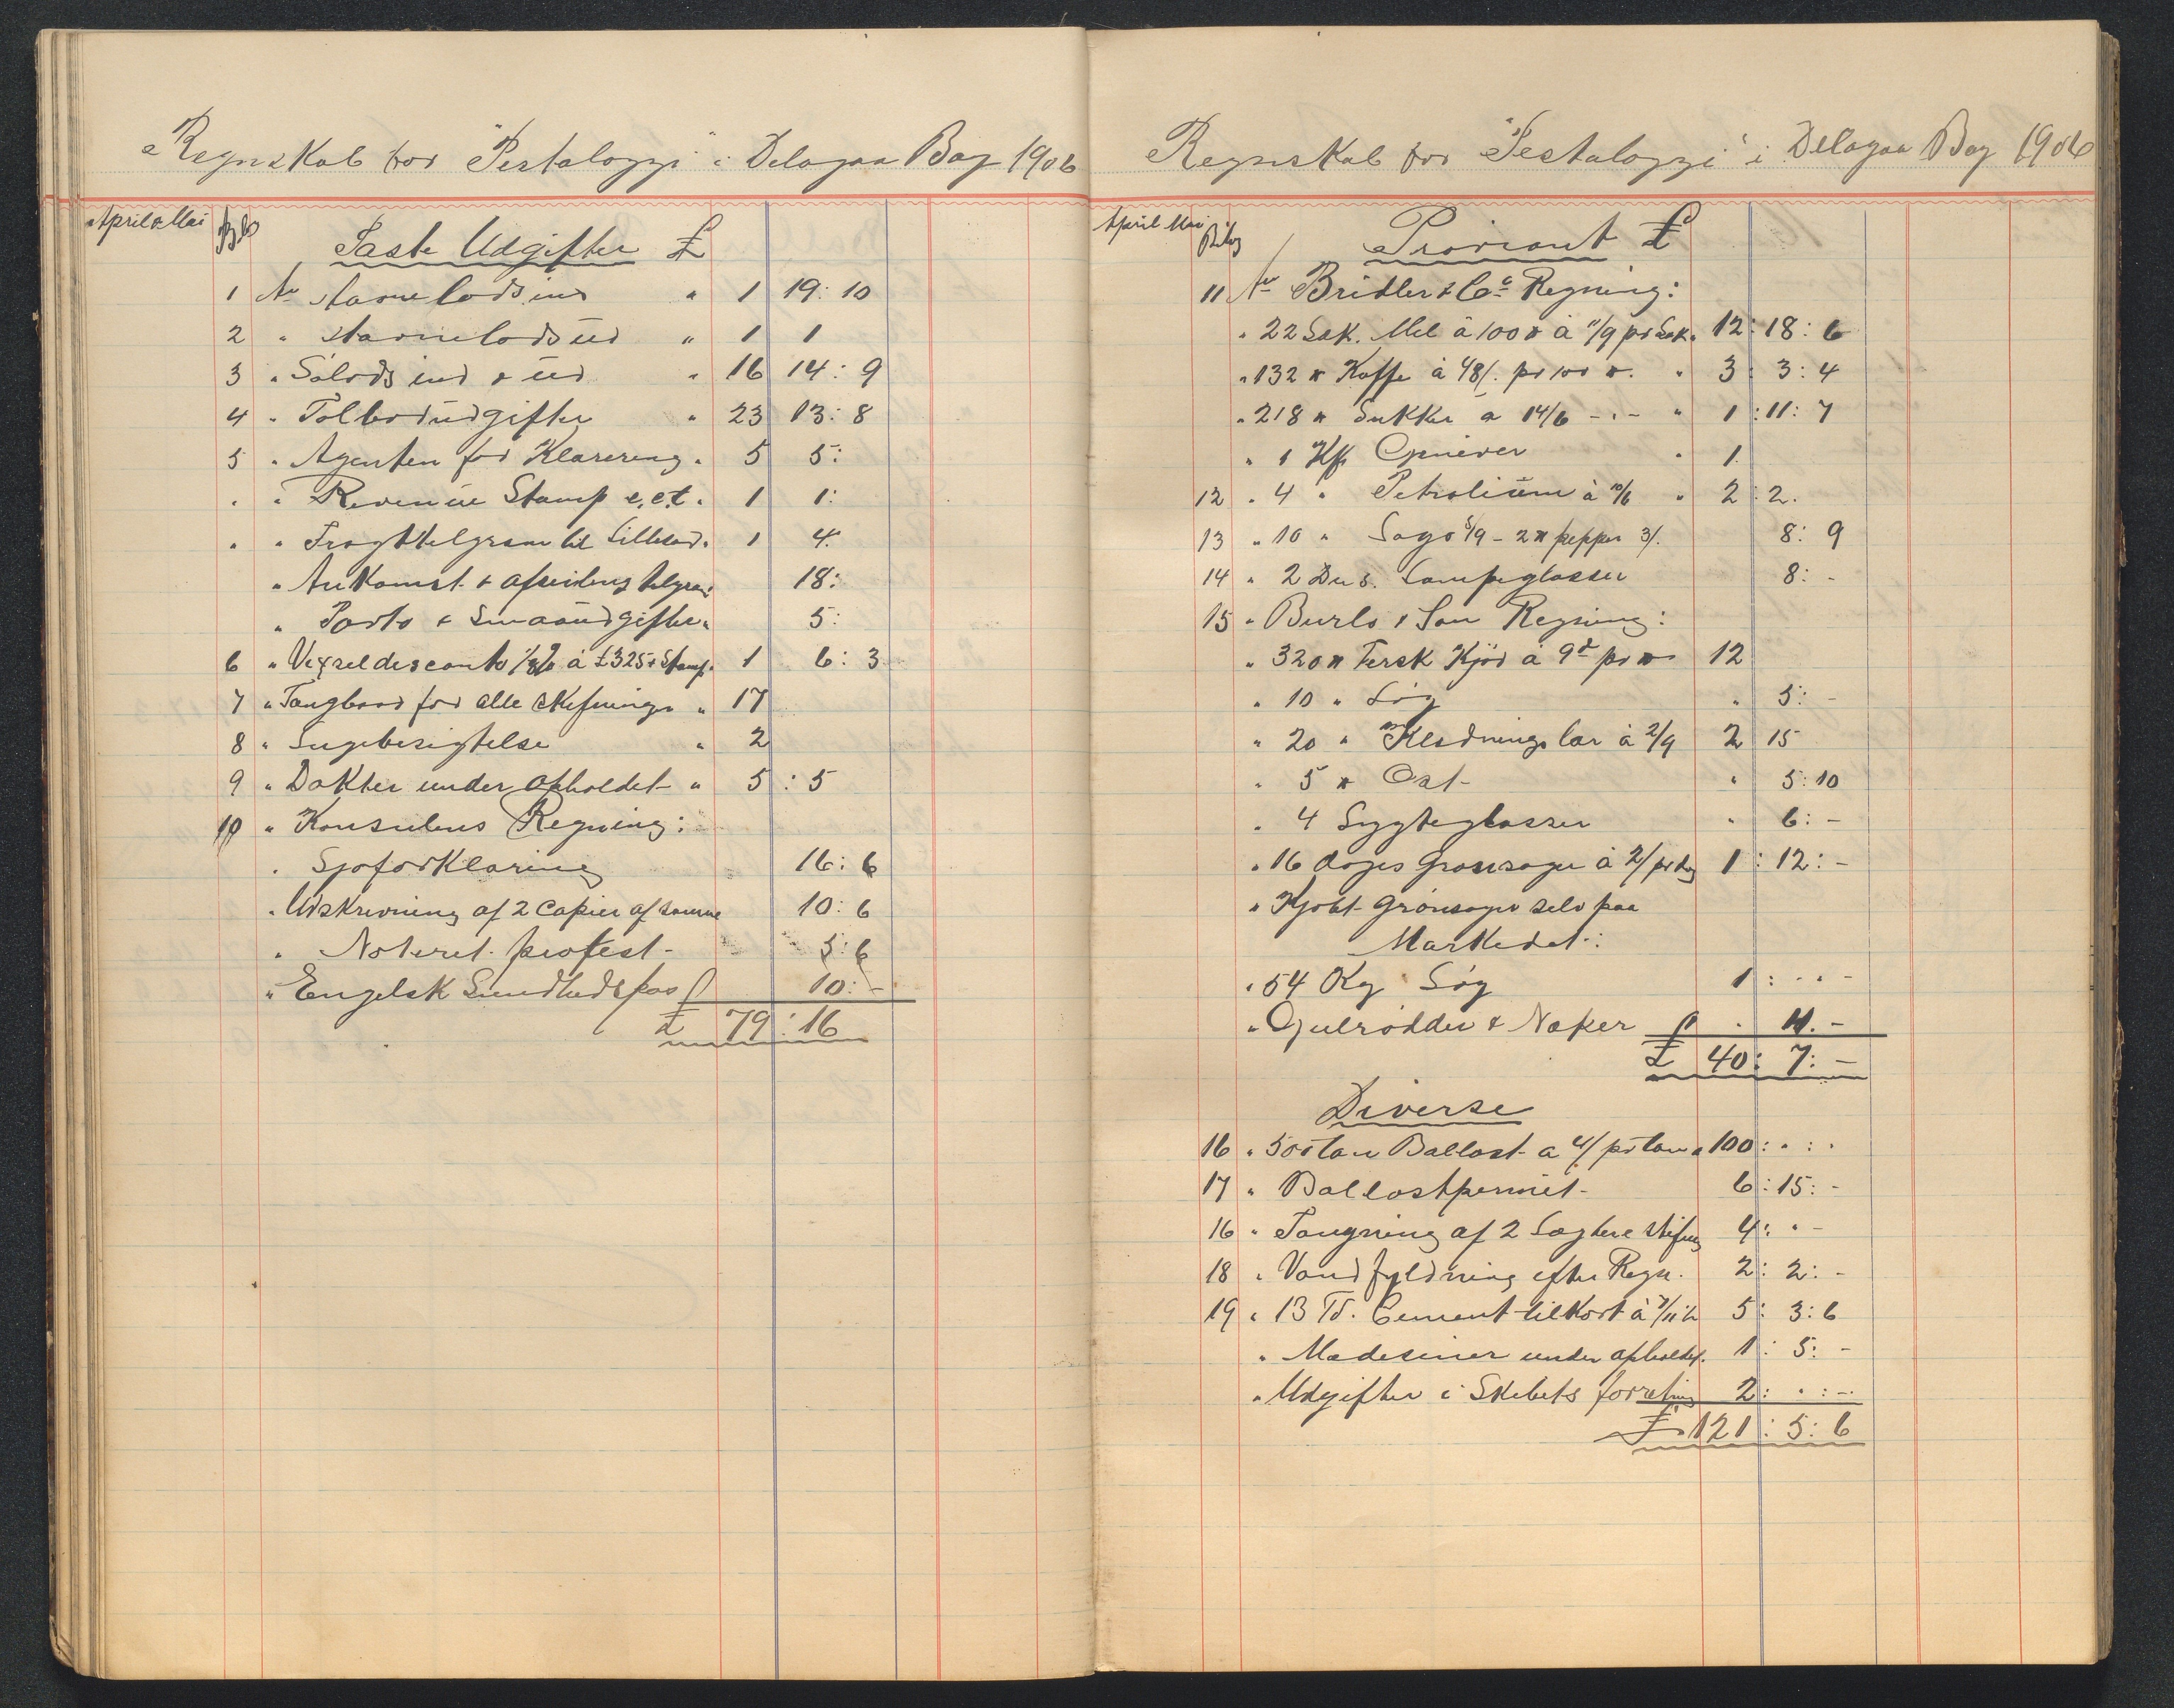 Regnskab for "Pestalozzi" i Delagoa Bay 1906
April & Mai
Faste Udgifter £
1 Nr Havnelods ind " 1 19: 10
2 " Havnelods ud " 1 1
3 " Sølods ind & ud " 16 14: 9
4 " Tolbodudgifter " 23 13: 8
5 " Agenten for Klarering " 5 5:
" " Revenue Stamp e.c.t. " 1 1:
" " Fragttelgram til Lillesand " 1 4.
" Ankomst & afseilings telgram 18:
" Porto & Smaaudgifter " 5:
6 " Vexeldisconto 1/8% à £325 & Stamp. 1 6: 3
7 " Taugbaad for alle Skiftninge " 17
8 " Lugebesigtelse " 2
9 " Dokter under Opholdet " 5: 5
10 " Konsulens Regning:
" Sjøforklaring 16: 6
" Udskrivning af 2 Copier af samme 10: 6
" Noteret protest 5: 6
" Engelsk Sundhedspas 10: -
£ 79: 16
Regnskab for "Pestalozzi" i Delagoa Bay 1906
April Mai
Bilag
Proviant £
11 Nr Bridler & Co Regning:
" 22 Sæk. Mel à 100 # à 11/9 pr Sæk " 12: 18: 6
" 132 # Kaffe à 48/. pr 100 #. " 3: 3: 4
" 218 # Sukker à 14/6 - " - " 1: 11: 7
" 1 Kfs Genever " 1.
12 " 4 " Petrolium à 10/6 " 2: 2.
13 " 10 " Sago 5/9 - 2 # pepper 3/. 8: 9
14 " 2 Dus. Lampeglasser 8: -
15 " Burlo & Son Regning:
" 320 # Fersk Kjød à 9d pr # 12
" 10 " Løg " 5: -
" 20 " Klædningslær à 2/9 2 15
" 5 # Ost " 5: 10
" 4 Lygteglasser " 6: -
" 16 dages Grønsager à 2/ pr dag 1: 12: -
" Kjøbt Grønsager selv paa
Markedet:
" 54 Kg Løg 1: " " -
" Gulrødder & Næper " 11. -
£ 40: 7: -
Diverse
16 " 500 tan Ballast à 4/ pr tan " 100: " : "
17 " Ballastpermit 6: 15: -
16 " Taugning af 2 Lægtere Skifning 4: " -
18 " Vandfyldning efter Regn. 2: 2: -
19 " 13 Td. Cement tilkort à 7/11½ 5: 3: 6
" Medesiner under opholdet. 1: 5: -
" Udgifter i Skibets forretning 2: " : -
£ 121: 5: 6